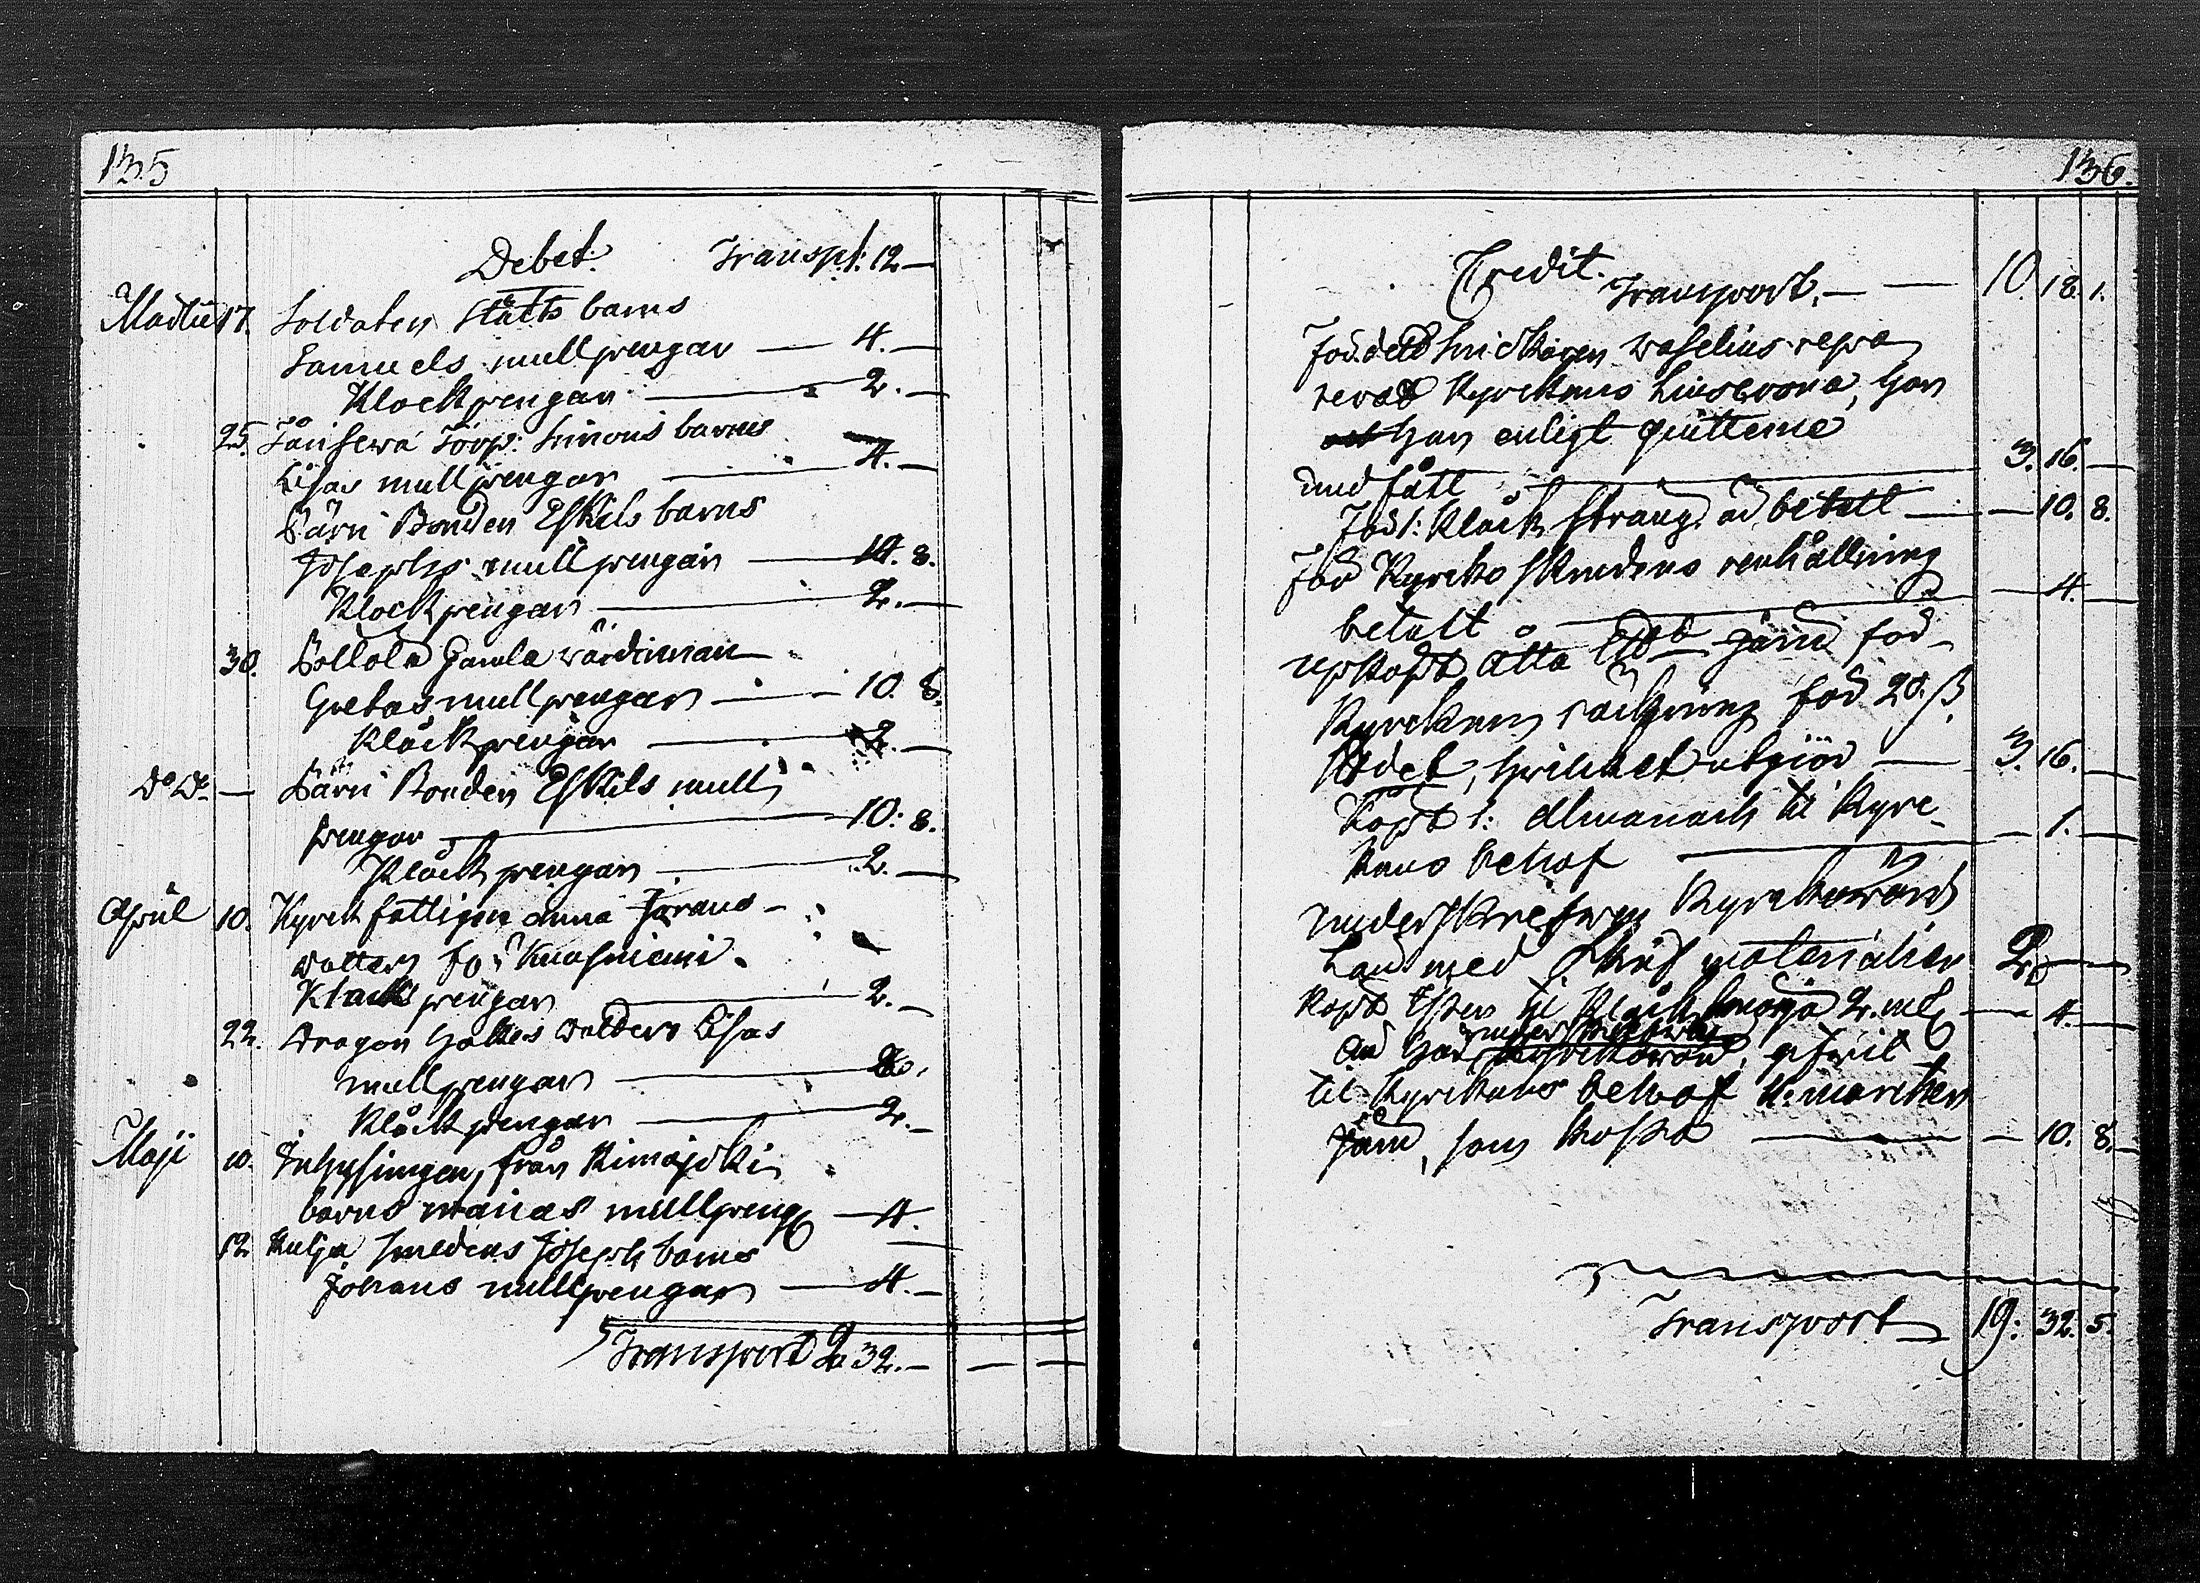 135
Debet. Transpt: 12 —
Martii 17. Soldaten Stålts barns
Samuels mullpengar — 4. —
Klockpengar — 2. —
25. Jänsewä Torp: Simons barns
Lisas mullpengar — 4. —
Särri Bonden Eskils barns
Josephs mullpengar — 10. 8.
Klockpengar — 2. —
30. gamla wärdinnan
Gretas mullpengar — 10. 8.
Klåckpengar — 2. —
Do Do — Särri Bonden Eskils mull
pengar — 10: 8.
Klåckpengar — 2. —
April 10. Kyrck fattigen Anna Jörans
dotters från Kuusniemi
Klåckpengar — 2. —
22. Dragon dotters Lisas
mullpengar —
Klåckpengar — 2. —
Maji 10. Inhysingen, från
barns Marias mullpeng — 4.
12. Kulja Smedens Joseph barns
Johans mullpengar — 4. —
Transport 2. 32. — — —
136.
Credit.
Transport. — — 10. 18. 1.
För det Snickaren Waselius repa
rerat Kyrckans Liuscrona, har
han enligt quittence
undfått — 3. 16. —
För 1: Klåck sträng är betalt — — 10. 8.
För Kyrcko skrudens renhållning
betalt — — 4. —
upköpt åtta järn för
Kyrckans räckning för 20. ß
, hvilcket utgiör — 3. 16. —
Köpt 1: Almanach til Kyrc-
kans behof — — 1. —
underskrefven Kyrckowärd
med Skrif materialier 2. —
Köpt Ister til Klåck smörja 2. — 4. —
underskrefven
An har Kyrckowärd, gifvit
til Kyrckans behof 4: marcker
Järn, som kosta — — 10. 8. —
Transport 19: 32. 5.